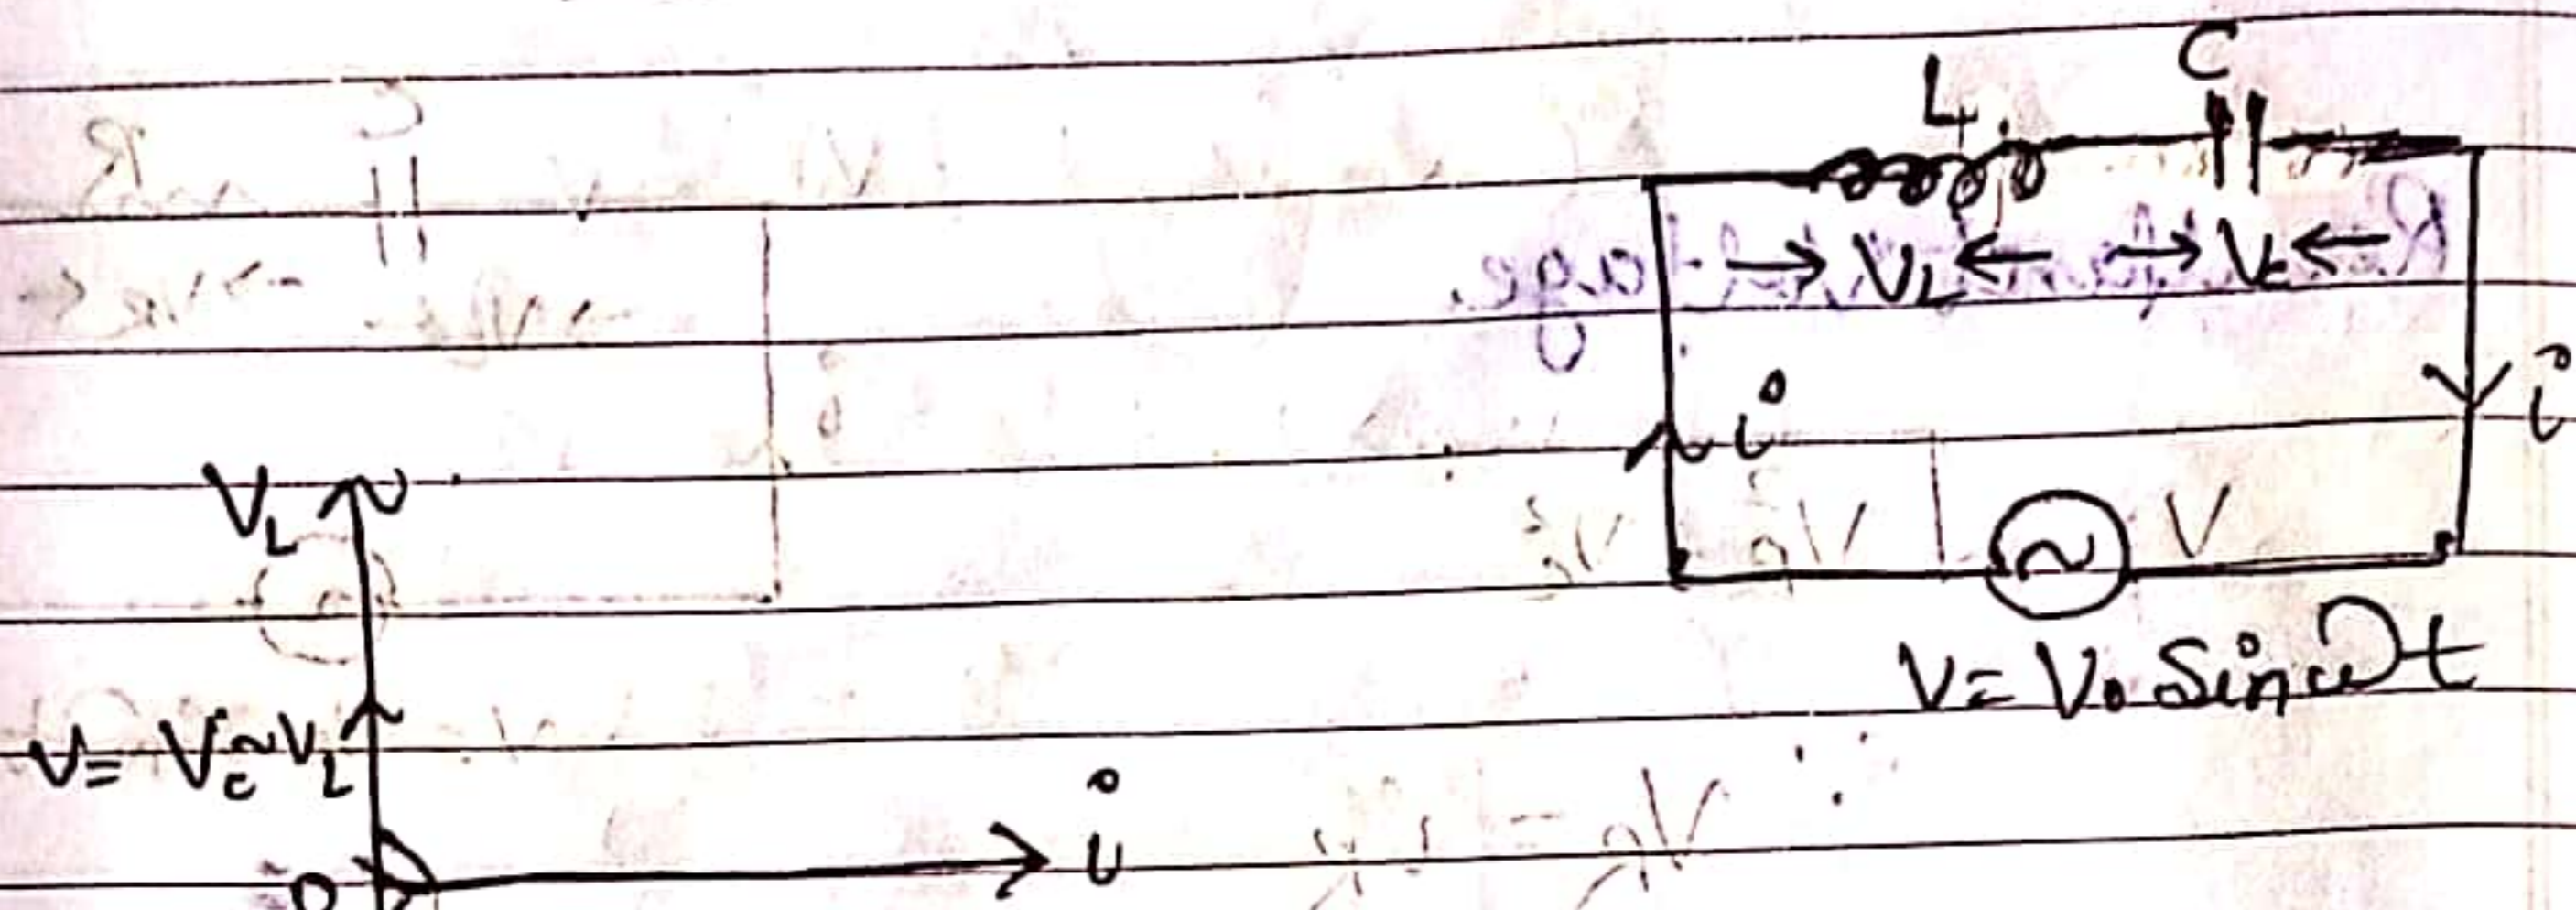 L C
V_L V_c
i i
V_L
V
V = V₀ Sin ωt
V = V_c ~ V_L
i
O